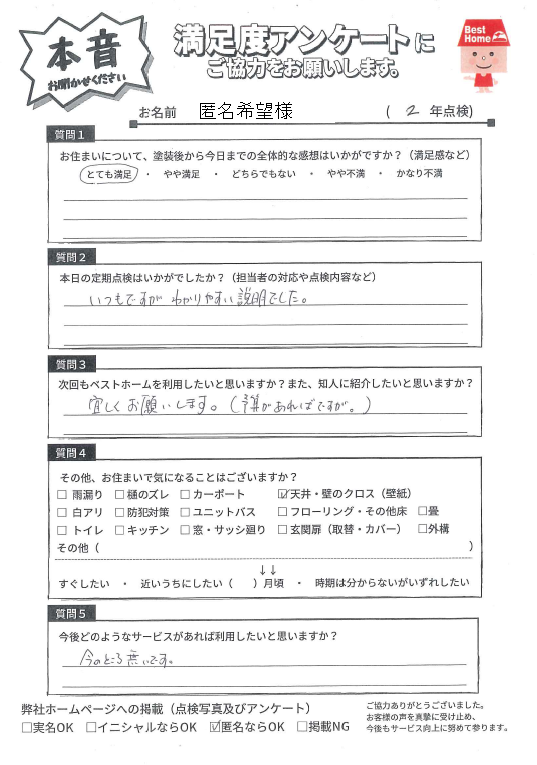 本音
お聞かせください
満足度アンケートに
ご協力をお願いします。
Best Home
お名前 匿名希望様 ( 2 年点検)
質問1
お住まいについて、塗装後から今日までの全体的な感想はいかがですか？（満足感など）
とても満足 ・ やや満足 ・ どちらでもない ・ やや不満 ・ かなり不満
質問2
本日の定期点検はいかがでしたか？（担当者の対応や点検内容など）
いつもですが わかりやすい説明でした。
質問3
次回もベストホームを利用したいと思いますか？また、知人に紹介したいと思いますか？
宜しくお願いします。（予算があればですが。）
質問4
その他、お住まいで気になることはございますか？
☐ 雨漏り ☐ 樋のズレ ☐ カーポート ☑天井・壁のクロス（壁紙）
☐ 白アリ ☐ 防犯対策 ☐ ユニットバス ☐ フローリング・その他床 ☐畳
☐ トイレ ☐ キッチン ☐ 窓・サッシ廻り ☐ 玄関扉（取替・カバー） ☐外構
その他（ ）
↓↓
すぐしたい ・ 近いうちにしたい（ ）月頃 ・ 時期は分からないがいずれしたい
質問5
今後どのようなサービスがあれば利用したいと思いますか？
今のところ無いです。
弊社ホームページへの掲載（点検写真及びアンケート）
☐実名OK ☐イニシャルならOK ☑匿名ならOK ☐掲載NG
ご協力ありがとうございました。
お客様の声を真摯に受け止め、
今後もサービス向上に努めて参ります。